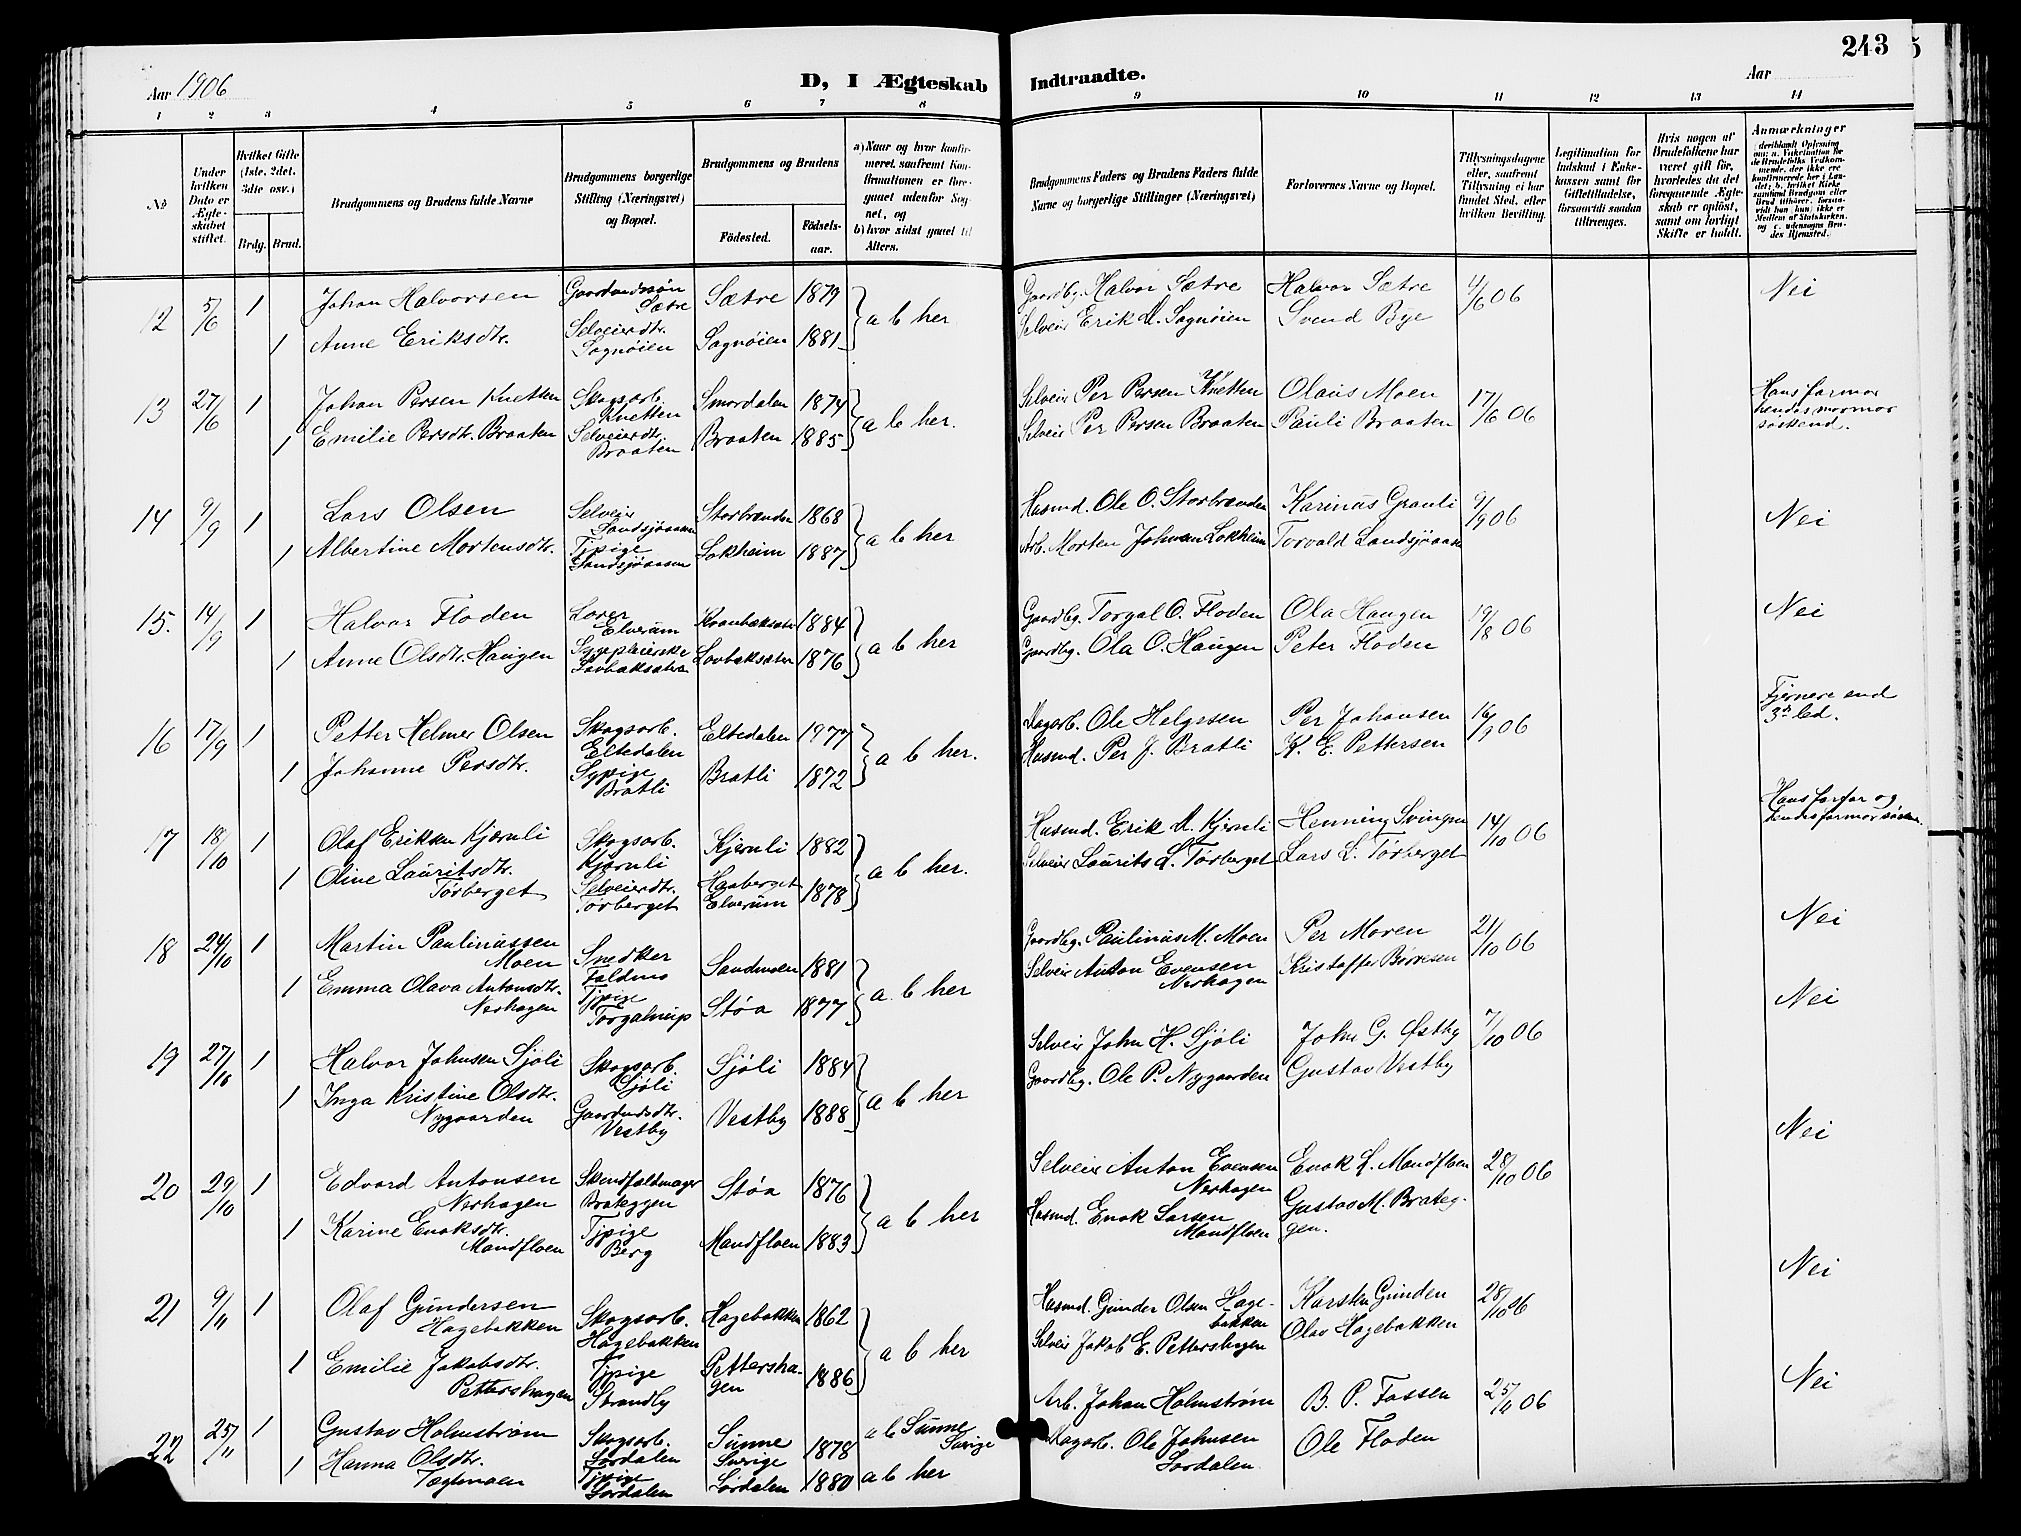 243
Aar 1906
D, I Ægteskab Indtraadte.
Aar
1 2 3 4 5 6 7 8 9 10 11 12 13 14
No
Under hvilken Dato er Ægteskabet stiftet.
Hvilket Gifte (1ste, 2det, 3die osv.)
Brdg. Brud.
Brudgommens og Brudens fulde Navne
Brudgommens borgerlige Stilling (Næringsvei) og Bopæl.
Brudgommens og Brudens
Fødested.
Fødselsaar.
a) Naar og hvor konfirmeret, saafremt Konfirmationen er foregaaet udenfor Sognet, og
b) hvor sidst gaaet til Alters.
Brudgommens Faders og Brudens Faders fulde Navne og borgerlige Stillinger (Næringsvei)
Forlovernes Navne og Bopæl.
Tillysningsdagene eller, saafremt Tillysning ei har fundet Sted, efter hvilken Bevilling.
Legitimation for Indskud i Enkekassen samt for Giftetilladelse, forsaavidt saadan tiltrænges.
Hvis nogen af Brudefolkene har været gift før, hvorledes da det foregaaende Ægteskab er opløst, samt om lovligt Skifte er holdt.
Anmærkninger (deriblandt Oplysning om: a. Vakcination for de Brudefolks Vedkommende, der ikke ere konfirmerede her i Landet; b. hvilket Kirkesamfund Brudgom eller Brud tilhører, forsaavidt han (hun) ikke er Medlem af Statskirken, og c. udensogns Brudes Hjemsted.
12 5/6 1 Johan Halvorsen Gaardmdssøn Sætre Sætre 1879 a b her Gaardbg. Halvor Sætre Halvor Sætre 4/6 06 Nei
1 Anne Eriksdtr. Selveierdtr. Sagnøien Sagnøien 1881 Selveier Erik M. Sagnøien Svend Bye
13 27/6 1 Johan Persen Knetten Skogsarb. Knetten Smordalen 1874 a b her. Selveier Per Persen Knetten Olaus Moen 17/6 06 Hans farmor hendes mormor søskend.
1 Emilie Persdtr. Braaten Selveierdtr. Braaten Braaten 1885 Selveier Per Persen Braaten Pauli Braaten
14 9/9 1 Lars Olsen Selveier Landsjøaasen Storbrænden 1868 a b her Husmd. Ole O. Storbrænden Karinus Granli 9/9 06 Nei
1 Albertine Mortensdtr. Tjpige Landsjøaasen Lokheim 1887 Arb. Morten Johnsen Lokheim Torvald Landsjøaasen
15. 14/9 1 Halvor Floden Elverum 1884 a b her Gaardbg. Torgal O. Floden Ola Haugen 19/8 06 Nei
1 Anne Olsdtr. Haugen Sygepleierske Lovbæksætra Lovbæksæter 1876 Gaardbg. Ola O. Haugen Peter Floden
16 17/9 1 Petter Helmer Olsen Skogsarb. Eltedalen Eltedalen 1977 a b her. Ole Helgesen Per Johansen 16/9 06 Fjernere end 3die led.
1 Johanne Persdtr. Sypige Bratli Bratli 1872 Husmd. Per J. Bratli K. E. Pettersen
17 18/10 1 Olaf Eriksen Kjærnli Skogsarb. Kjernli Kjernli 1882 a b her. Husmd. Erik M. Kjernli Henning Svingen 14/10 06 Hans farfar og hendes farmor
1 Oline Lauritsdtr. Tørberget Selveierdtr. Tørberget Haaberget Elverum 1878 Selveier Laurits L. Tørberget Lars L. Tørberget
18 24/10 1 Martin Paulinussen Moen Snedker Faldmo Sandmoen 1881 a b her Gaardbg. Paulinus M. Moen Per Moren 21/10 06 Nei
1 Emma Olava Antonsdtr. Nerhagen Tjpige Støa 1877 Selveier Anton Evensen Nerhagen Kristoffer Børresen
19 27/10 1 Halvor Johnsen Sjøli Skogsarb. Sjøli Sjøli 1884 a b her Selveier John H. Sjøli John G. Østby 7/10 06 Nei
1 Inga Kristine Olsdtr. Nygaarden Gaardmdsdtr. Vestby Vestby 1888 Gaardbg. Ole P. Nygaarden Gustav Vestby
20 29/10 1 Edvard Antonsen Nerhagen Skindfældmager Brateggen Støa 1876 a b her Selveier Anton Evensen Nerhagen Enok L. Mandfloen 28/10 06 Nei
1 Karine Enoksdtr. Mandfloen Tjpige Berg Mandfloen 1883 Husmd. Enok Larsen Mandfloen Gustav M. Brateggen.
21 9/11 1 Olaf Gundersen Hagebakken Skogsarb. Hagebakken Hagebakken 1862 a b her Husmd. Gunder Olsen Hagebakken Karsten Grinden 28/10 06 Nei
1 Emilie Jakobsdtr. Pettershagen Tjpige Strandby Pettershagen 1886 Selveier Jakob E. Pettershagen Olav Hagebakken
22 25/11 1 Gustav Holmstrøm Skogsarb. Sørdalen Sunne Sverige 1878 a b Sunne Sverige Arb. Johan Holmstrøm B. P. Fossen 25/11 06 Nei
1 Hanna Olsdtr. Tægtmoen Tjpige Sørdalen Sørdalen 1880 a b her Ole Johnsen Sørdalen Ole Floden